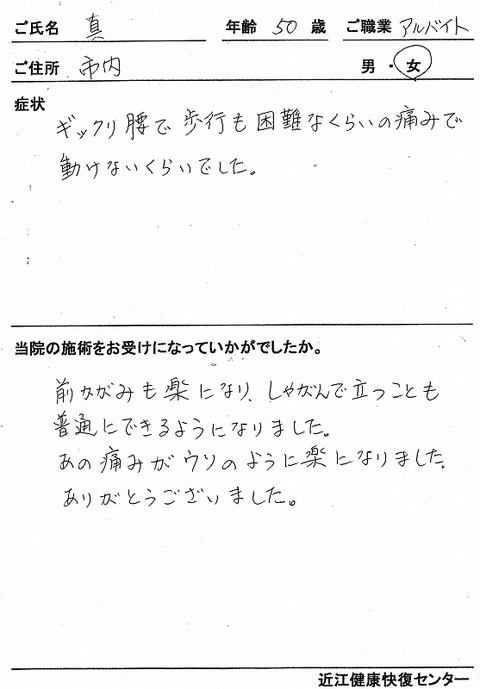 ご氏名 真 年齢 50 歳 ご職業 アルバイト
ご住所 市内 男・女
症状
ギックリ腰で歩行も困難なくらいの痛みで
動けないくらいでした。
当院の施術をお受けになっていかがでしたか。
前かがみも楽になり、しゃがんで立つことも
普通にできるようになりました。
あの痛みがウソのように楽になりました。
ありがとうございました。
近江健康快復センター